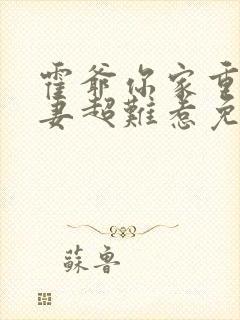 霍爺你家重
妻超難惹免
蘇魯